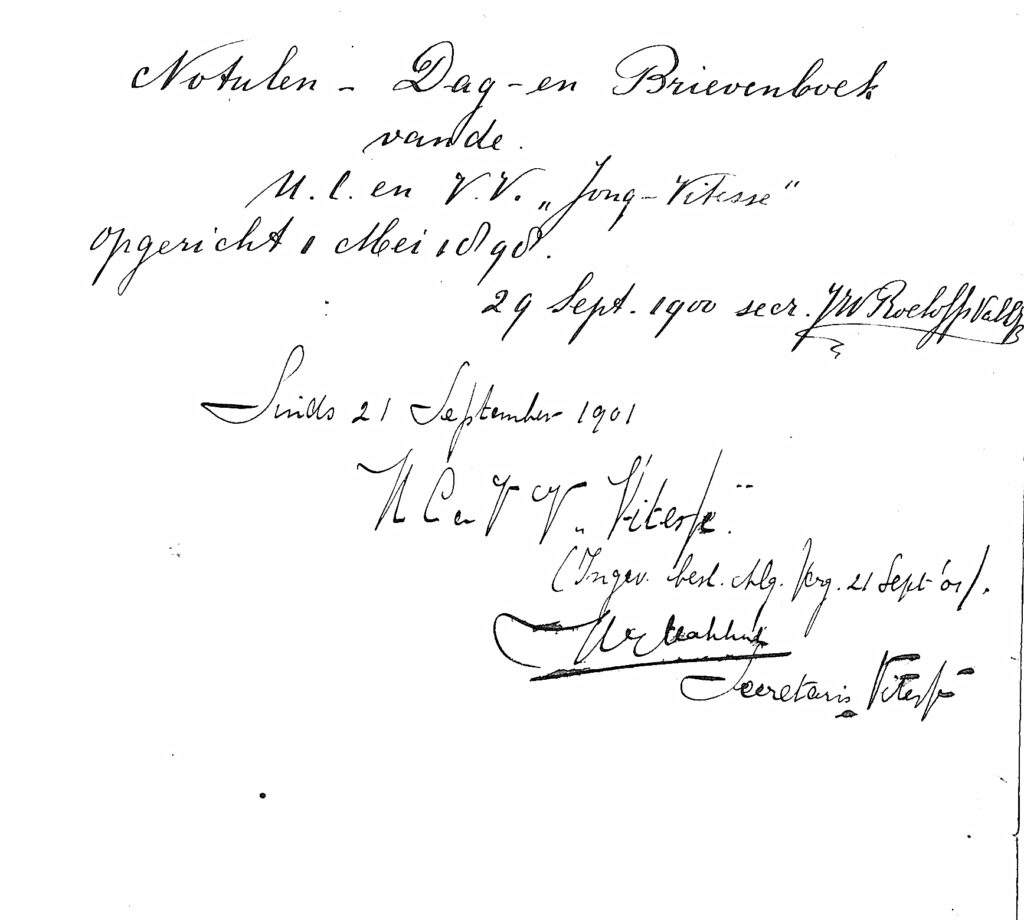 Notulen - Dag-en Brievenboek
van de.
U.C. en V.V. „Jong-Vitesse"
opgericht 1 Mei 1898.
29 Sept. 1900 secr. JW Roeloffs
Sinds 21 September 1901
U C en V V „Vitesse".
(Ingev. besl. Alg. Verg. 21 Sept '01).
Secretaris Vitesse